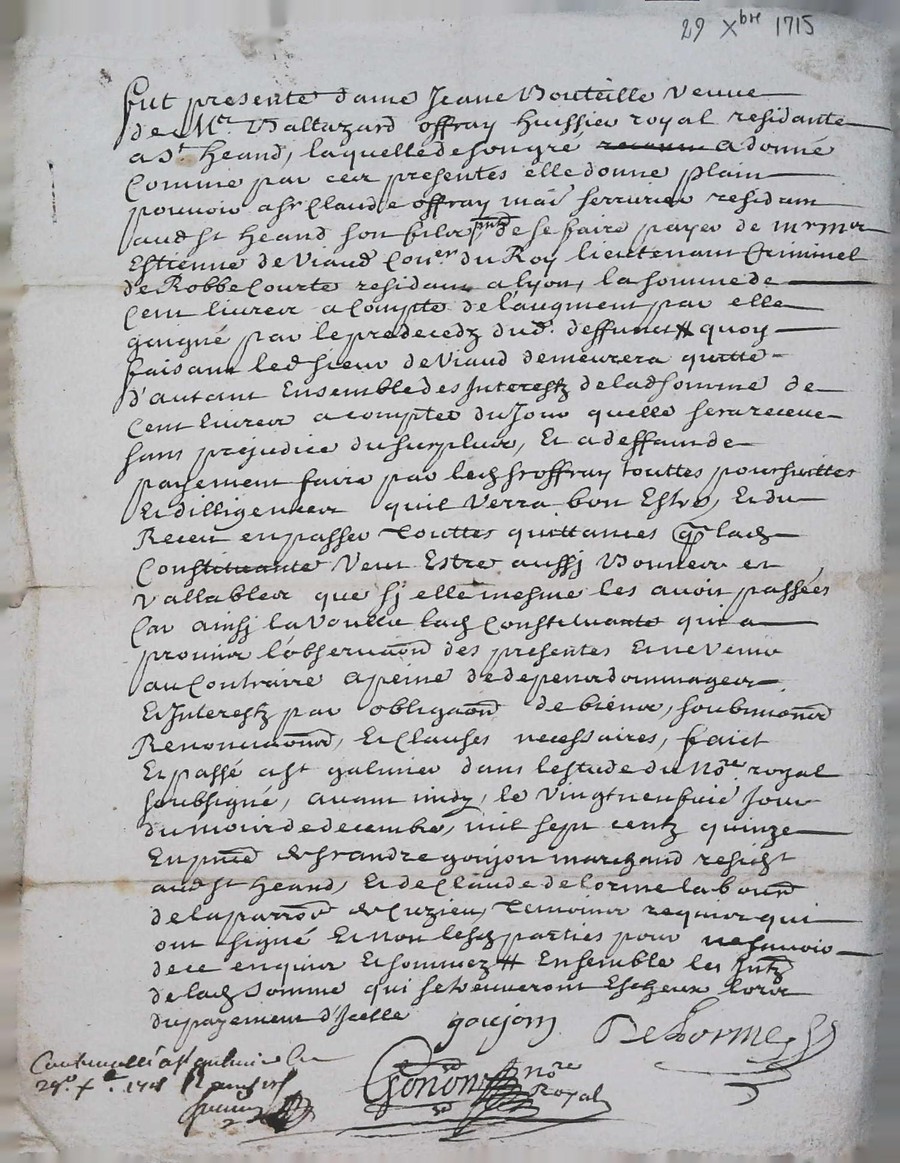 29 Xbre 1715
fut presente dame Jeane Bouteille veuve
de Mr. Baltazard offray huissier royal residante
a St heand, laquelle de son gre a donné
Comme par ces presentes elle donne plain
pouvoir a sr Claude offray mai serrurier residant
audst heand son filz pnt de se faire payer de
Estienne de Viaud Coner du Roy lieutenant Criminel
de Robbe Courte residant a lyon, la somme de
Cent livres a Compte de l'augment par elle
gaigné par le predecedz dud. deffunct # quoy
faisant led sieur de Viaud demeurera quitte
d'autant Ensemble des Interestz de lad somme de
Cent livres a compter du Jour quelle sera receue
sans prejudice du surplus, Et a deffaut de
payement faire par led sr offray touttes poursuittes
Et dilligences quil verra bon Estre, Et du
Receu en passer touttes quittances q lad
Constituante veut Estre aussj bonnes et
vallables que sj elle mesme les avoit passées
Car ainsj la voullu lad Constituante qui a
promis l'observaon des presentes Et ne venir
au Contraire a peine de depens dommages
Et Interestz par obligaon de biens, soubmions
Renonciaons, Et Clauses necessaires, faict
Et passé a st galmier dans lestude du Nore royal
soubsigné, avant midy, le vingt neufvie Jour
du mois de decembre, mil sept centz quinze
En pnce de sr andre goujon marchand residt
audst heand, Et de Claude delorme labour
de la parroe de Cuzieu, temoins requis qui
ont signé Et non lesd parties pour ne scavoir
de ce enquis Et sommez # Ensemble les Intz
de lad Somme qui se treuveront Escheux lors
du payement d'Icelle goujon DeLorme
Controuellé a st galmier le
29e Xbre
Gonon nore
Royal